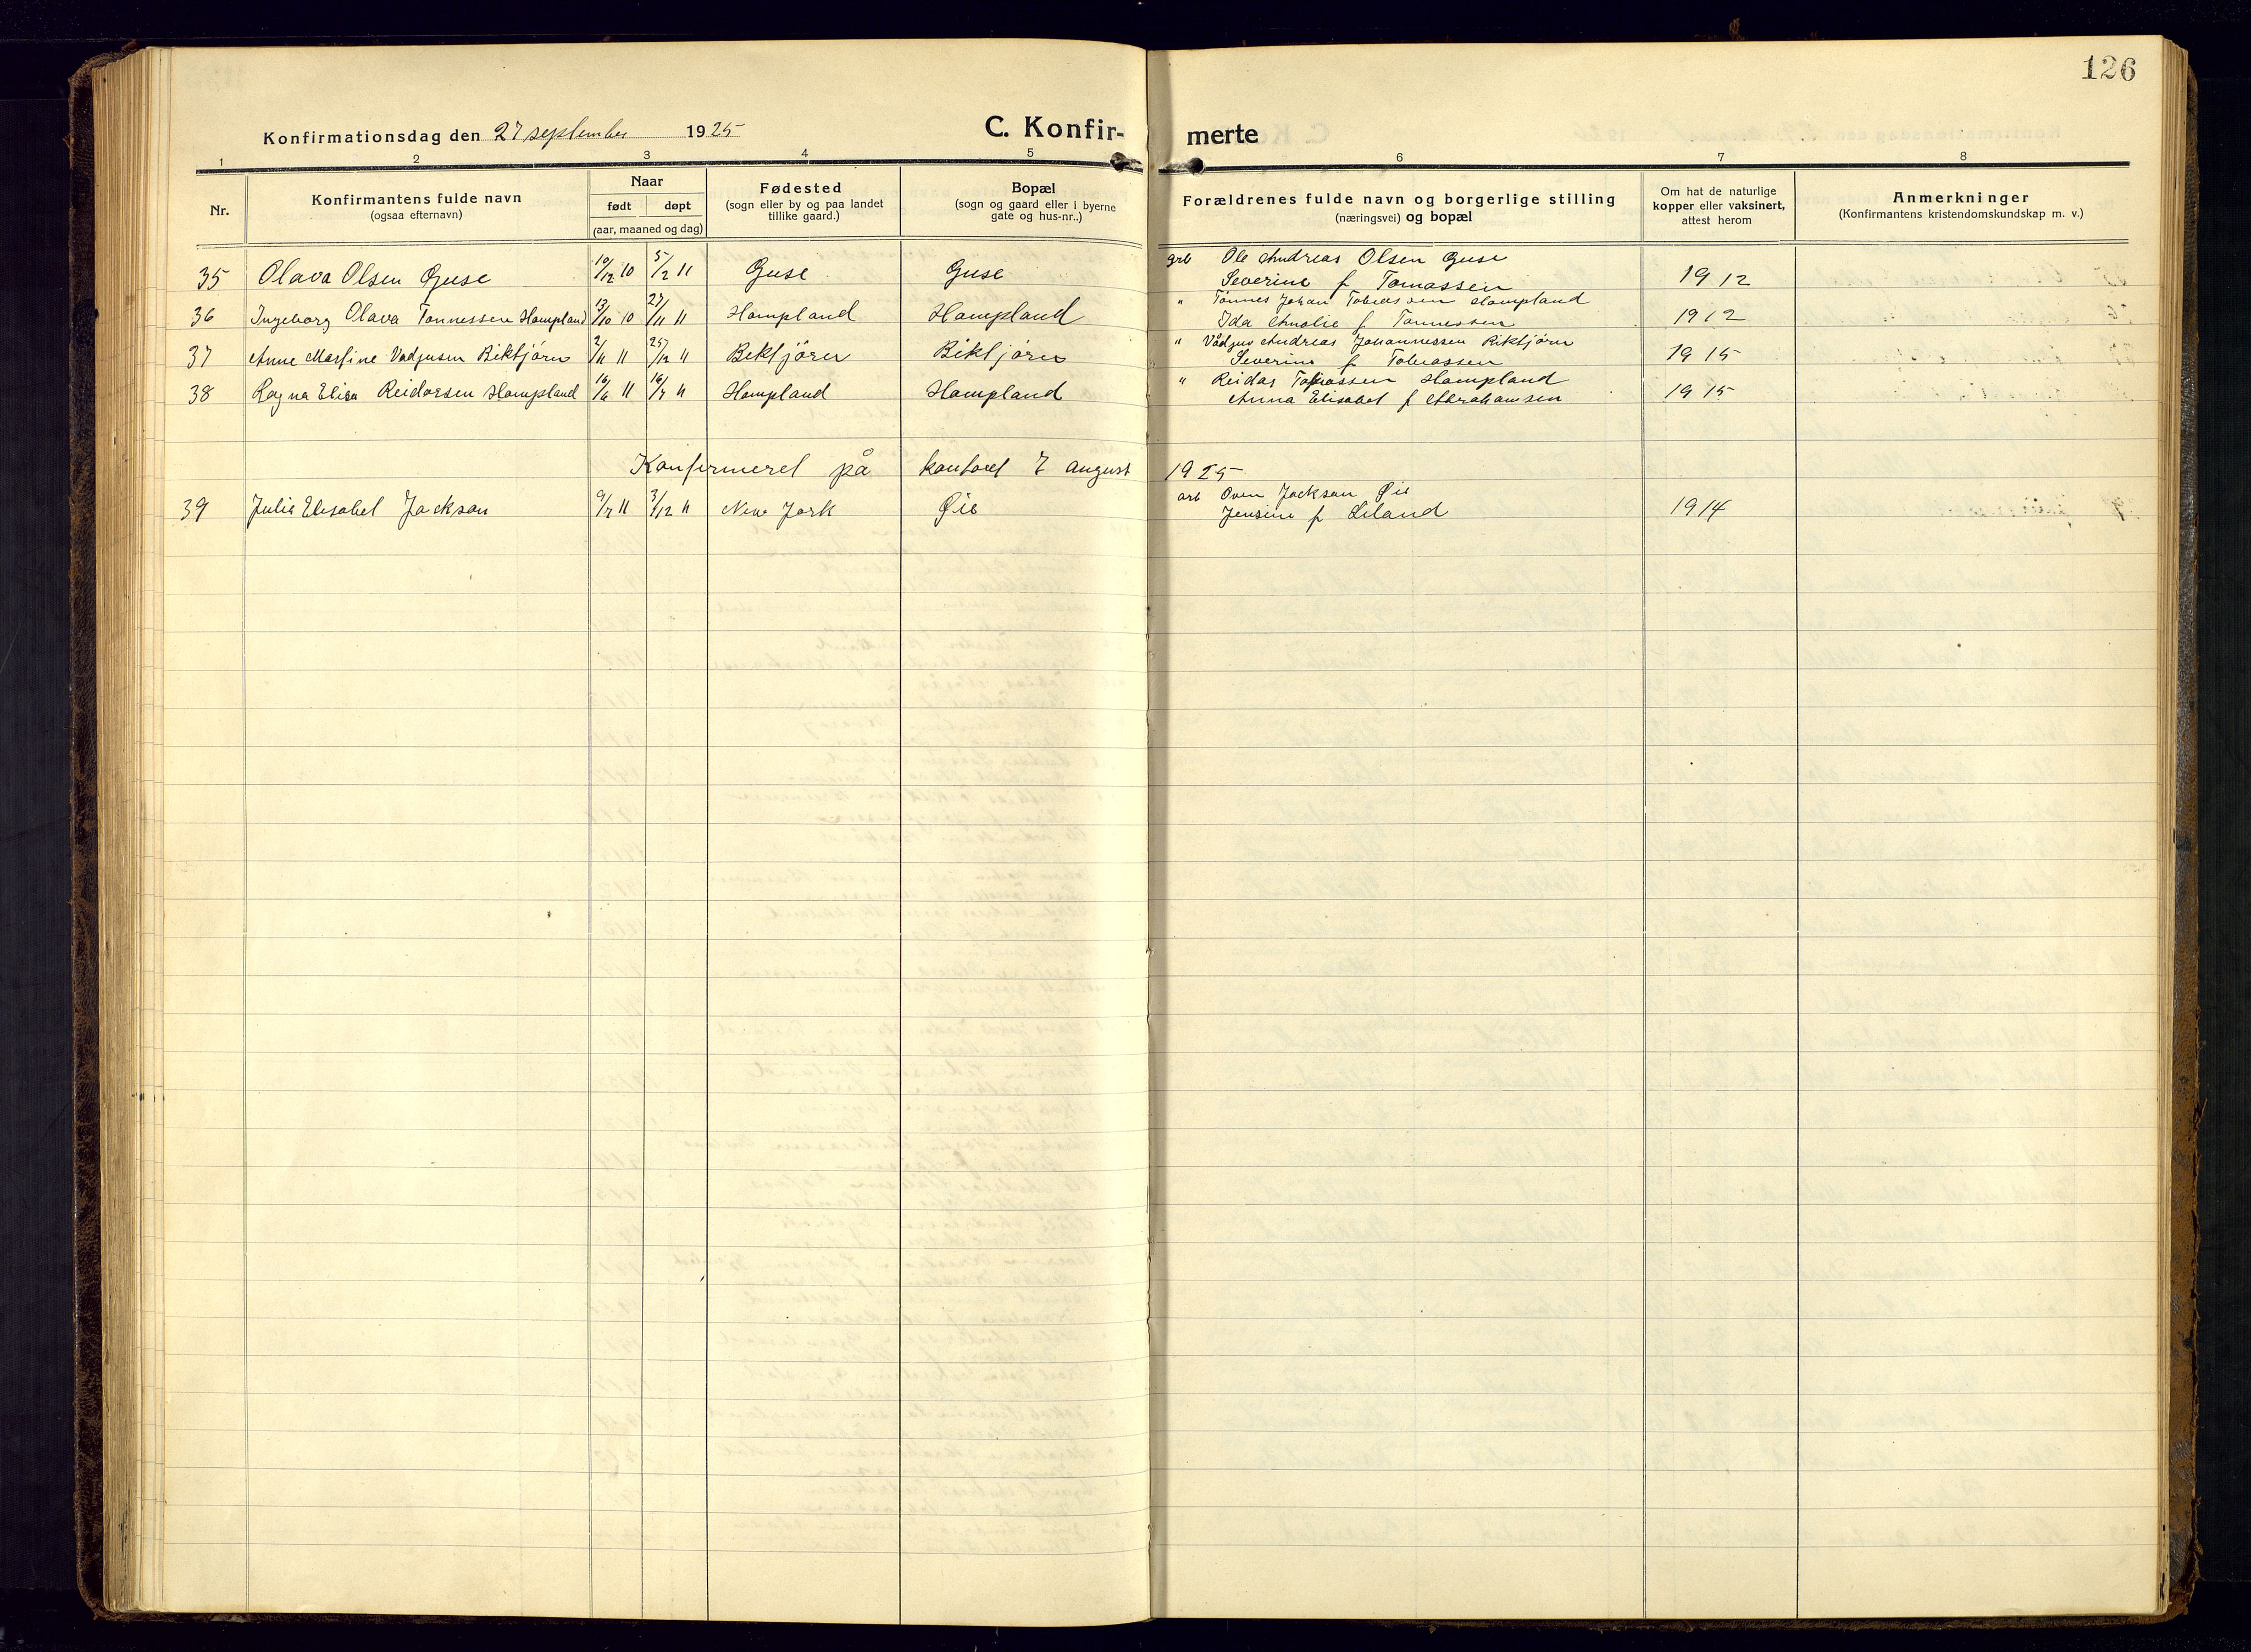 126
Konfirmationsdag den 27 september 1925
C. Konfir-
merte
1 2 3 4 5 6 7 8
Nr.
Konfirmantens fulde navn
(ogsaa efternavn)
Naar
født døpt
(aar, maaned og dag)
Fødested
(sogn eller by og paa landet
tillike gaard.)
Bopæl
(sogn og gaard eller i byerne
gate og hus-nr..)
Forældrenes fulde navn og borgerlige stilling
(næringsvei) og bopæl
Om hat de naturlige
kopper eller vaksinert,
attest herom
Anmerkninger
(Konfirmantens kristendomskundskap m. v.)
35 Olava Olsen Guse 10/12 10 5/2 11 Guse Guse grb Ole Andreas Olsen Guse
Severine f Tomassen 1912
36 Ingeborg Olava Tønnessen Hompland 13/10 10 27/11 11 Hompland Hompland " Tönnes Johan Tobiassen Hompland
Ida Amalie f Tønnessen 1912
37 Anne Marfine Vadjusen Rikbjörn 2/11 11 25/12 11 Rekbjörn Rikbjörn " Vådjuv Andreas Johannessen Rikbjörn
Severine f Tobiassen 1915
38 Ragna Elisa Reidarsen Hompland 10/6 11 16/7 11 Hompland Hompland " Reidar Tobiassen Hompland
Anna Elisabet f Abrahamsen 1915
Konfirmeret på kontoret 7 august 1925
39 Julie Elisabet Jackson 9/7 11 3/12 11 New Jork Øie arb Oven Jackson Øie
Jensine f Leland 1914